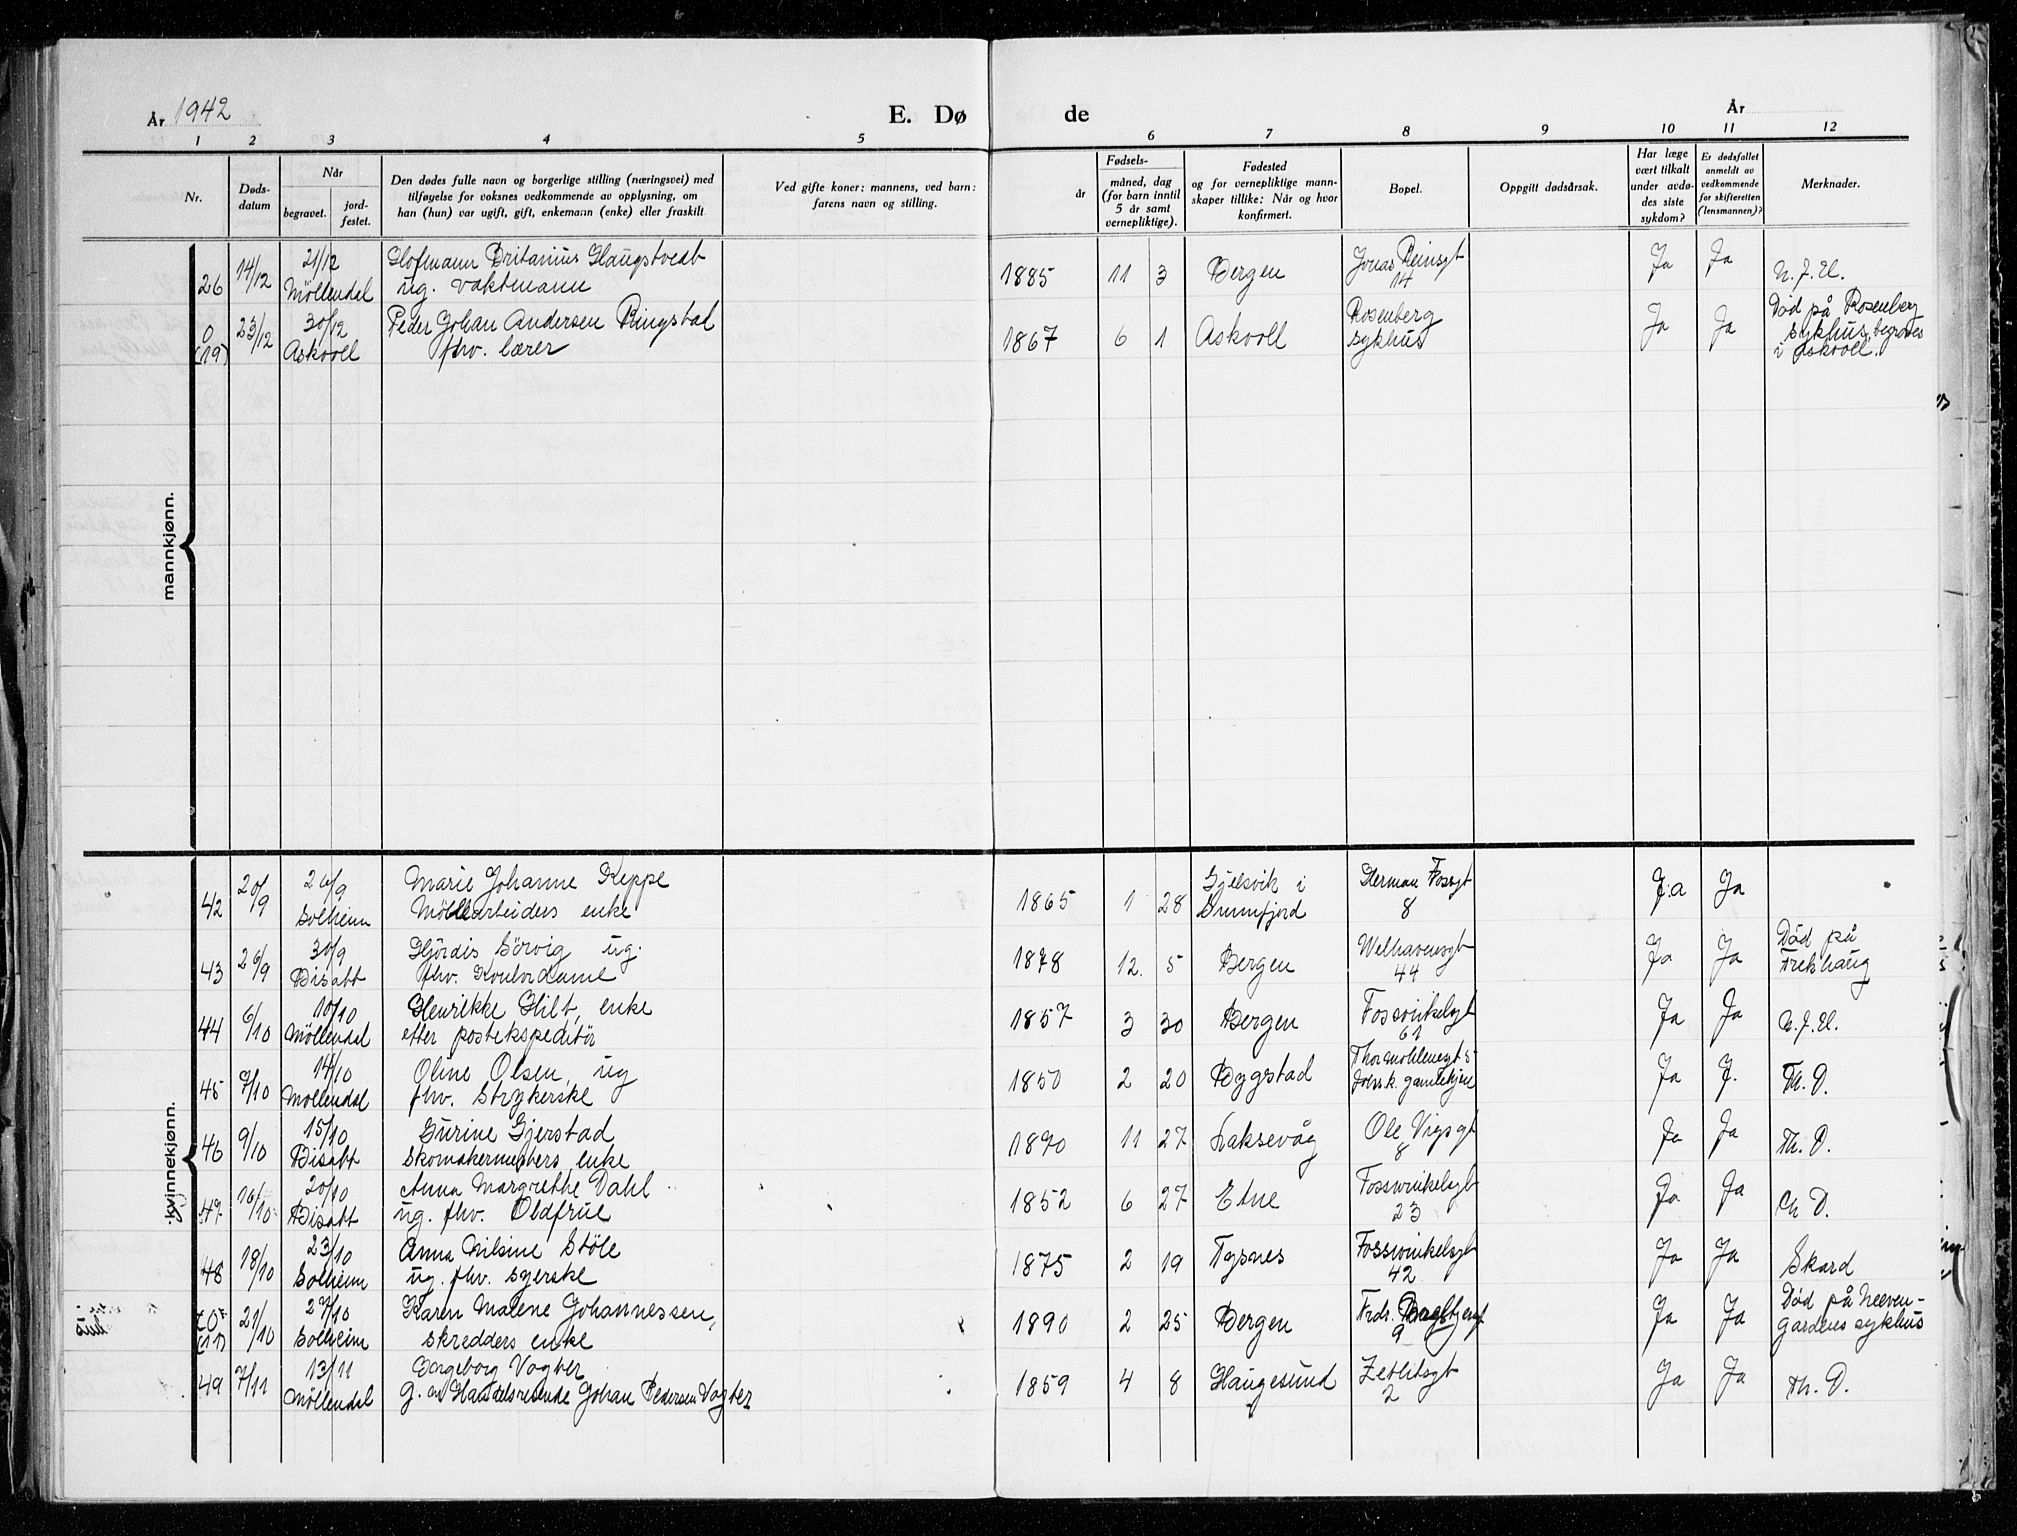 År 1942
E. Dø de
År
1 2 3 4 5 6 7 8 9 10 11 12
Nr.
Døds-
datum
Når
begravet.
jord-
festet.
Den dødes fulle navn og borgerlige stilling (næringsvei) med
tilføyelse for voksnes vedkommende av opplysning, om
han (hun) var ugift, gift, enkemann (enke) eller fraskilt
Ved gifte koner: mannens, ved barn:
farens navn og stilling.
Fødsels-
år
måned, dag
(for barn inntil
5 år samt
vernepliktige).
Fødested
og for vernepliktige mann-
skaper tillike: Når og hvor
konfirmert.
Bopel.
Oppgitt dødsårsak.
Har læge
vært tilkalt
under avdø-
des siste
sykdom?
Er dødsfallet
anmeldt av
vedkommende
for skifteretten
(lensmannen)?
Merknader.
mannkjønn.
14/12 21/12 Hofmann Britanius Haugstvedt Jonas Reinsgt
26 Möllendal ug. vaktmann 1885 11 3 Bergen 14 Ja Ja N. J. H.
0 23/12 30/12 Peder Johan Andersen Ringstad Rosenberg Død på Rosenberg
(19) Askvoll fhv. lærer 1867 6 1 Askvoll sykhus Ja Ja sykhus, begraves
i Askvoll.
kvinnekjønn.
20/9 26/9 Marie Johanne Keppe Gjelsvik i Herman Fossgt
42 Solheim Möllearbeiders enke 1865 1 28 Sunnfjord 8 Ja Ja
26/9 30/9 Hjördis Sörvig ug. Welhavensgt Död på
43 Disabt fhv. Kontordame 1878 12. 5 Bergen 44 Ja Ja Frekhaug
6/10 10/10 Henrikke Hilt, enke Fosswinkelsgt
44 Möllendal efter postekspeditör 1857 3 30 Bergen 61 Ja Ja N. J. H.
7/10 14/10 Oline Olsen, ug Thormöhlensgt 5
45 Möllendal fhv. Strykerske 1850 2 20 Bygstad Johsk. gamlehjem Ja J. Th. D.
9/10 15/10 Gurine Gjerstad Ole Vigsgt
46 Disabt Skomakermesters enke 1890 11 27 Laksevåg 8 Ja Ja Th. D.
16/10 20/10 Anna Margrethe Dahl Fosswinkelsgt
47 Disabt ug. fhv. Oldfrue 1852 6 27 Etne 23 Ja Ja Th D.
18/10 23/10 Anna Nilsine Støle Fosswinkelsgt
48 Solheim ug. fhv. syerske 1875 2 19 Tysnes 42 Ja Ja Skard
0 21/10 27/10 Karen Malene Johannessen, Frdr. Död på Neeven-
(17) Solheim skredders enke 1890 2 25 Bergen 9 Ja Ja gårdens sykhus
7/11 13/11 Ingeborg Vogter Zetlitsgt
49 Möllendal g. m Handelsreisende Johan Pedersen Vogter 1859 4 8 Haugesund 2 Ja Ja Th. D.